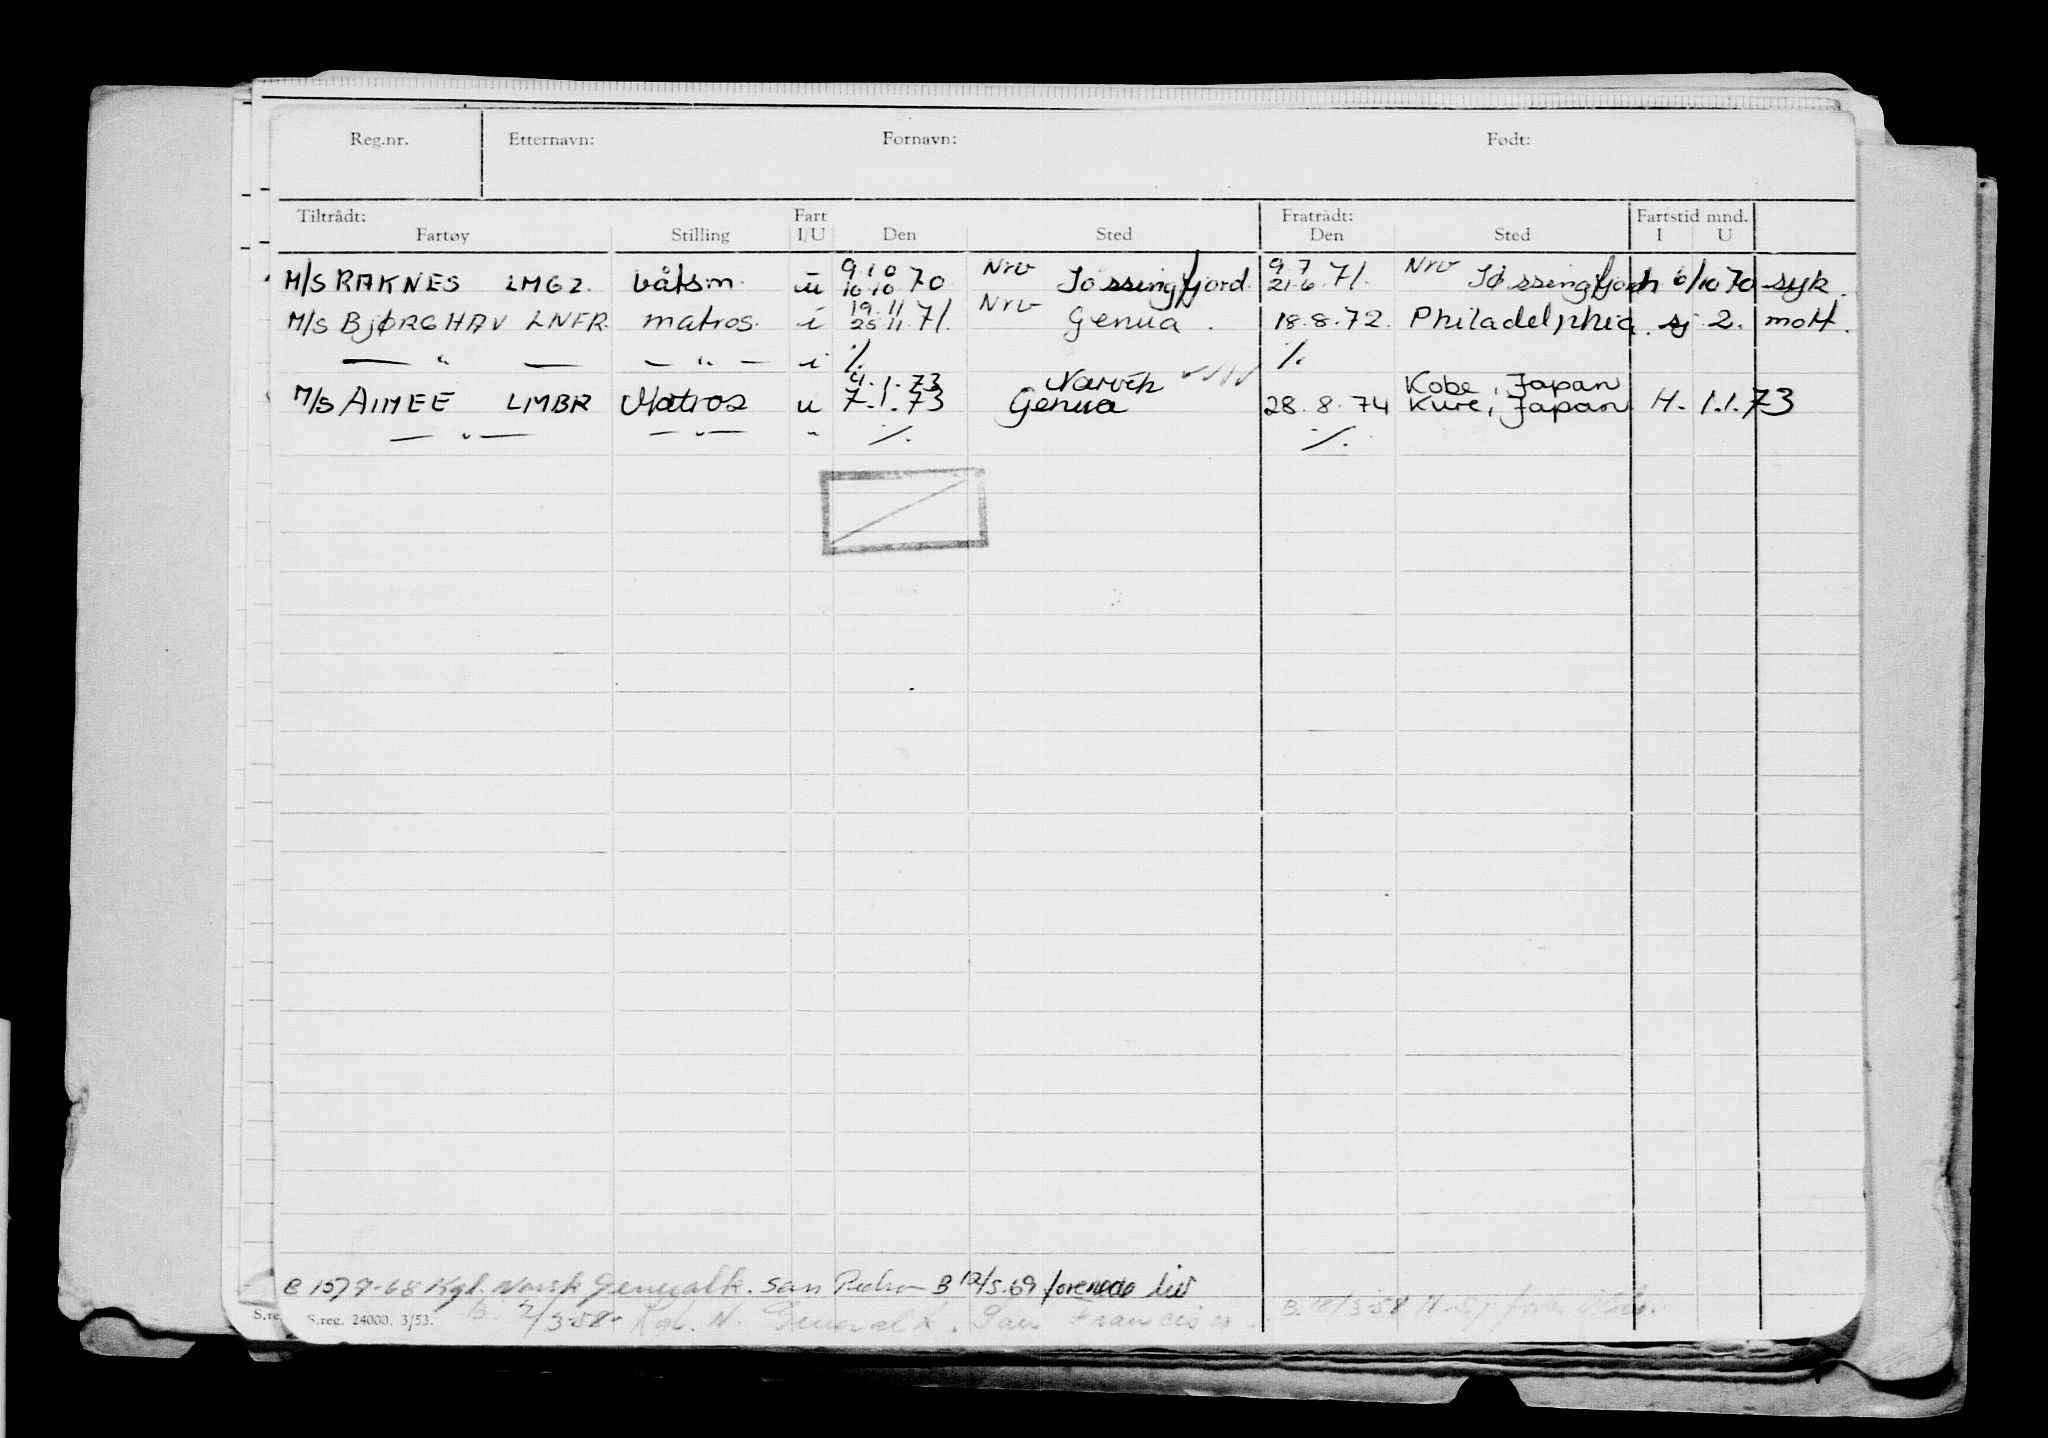 Reg.nr. Etternavn: Fornavn: Født:
Tiltrådt: Fart Fratrådt: Fartstid mnd.
Fartøy Stilling I/U Den Sted Den Sted I U
9.10 Nrv 9.7 Nrv
M/S RAKNES LMGZ. båtsm. u 10.10.70 Jøssingfjord. 21.6.71. Jøssingfjord h 6/10 70 syk.
19.11 Nrv
M/S BJØRGHAV LNFR. matros. i 25.11.71. Genua. 18.8.72. Philadelphia. sj 2. mott.
— " — — " — i ./. ./.
4.1.73 Narvik Kobe, Japan
M/S AIMEE LMBR Matros u 7.1.73 Genua 28.8.74 Kure, Japan H. 1.1.73
— " — — " — " ./. ./.
B 15/7-68 Kgl. Norsk Generalk. San Pedro B 12/5.69
S.re S.reg. 24000. 3/53. B. 7/3-58- Kgl. N. Generalk. San Francisco. B. 18/3-58